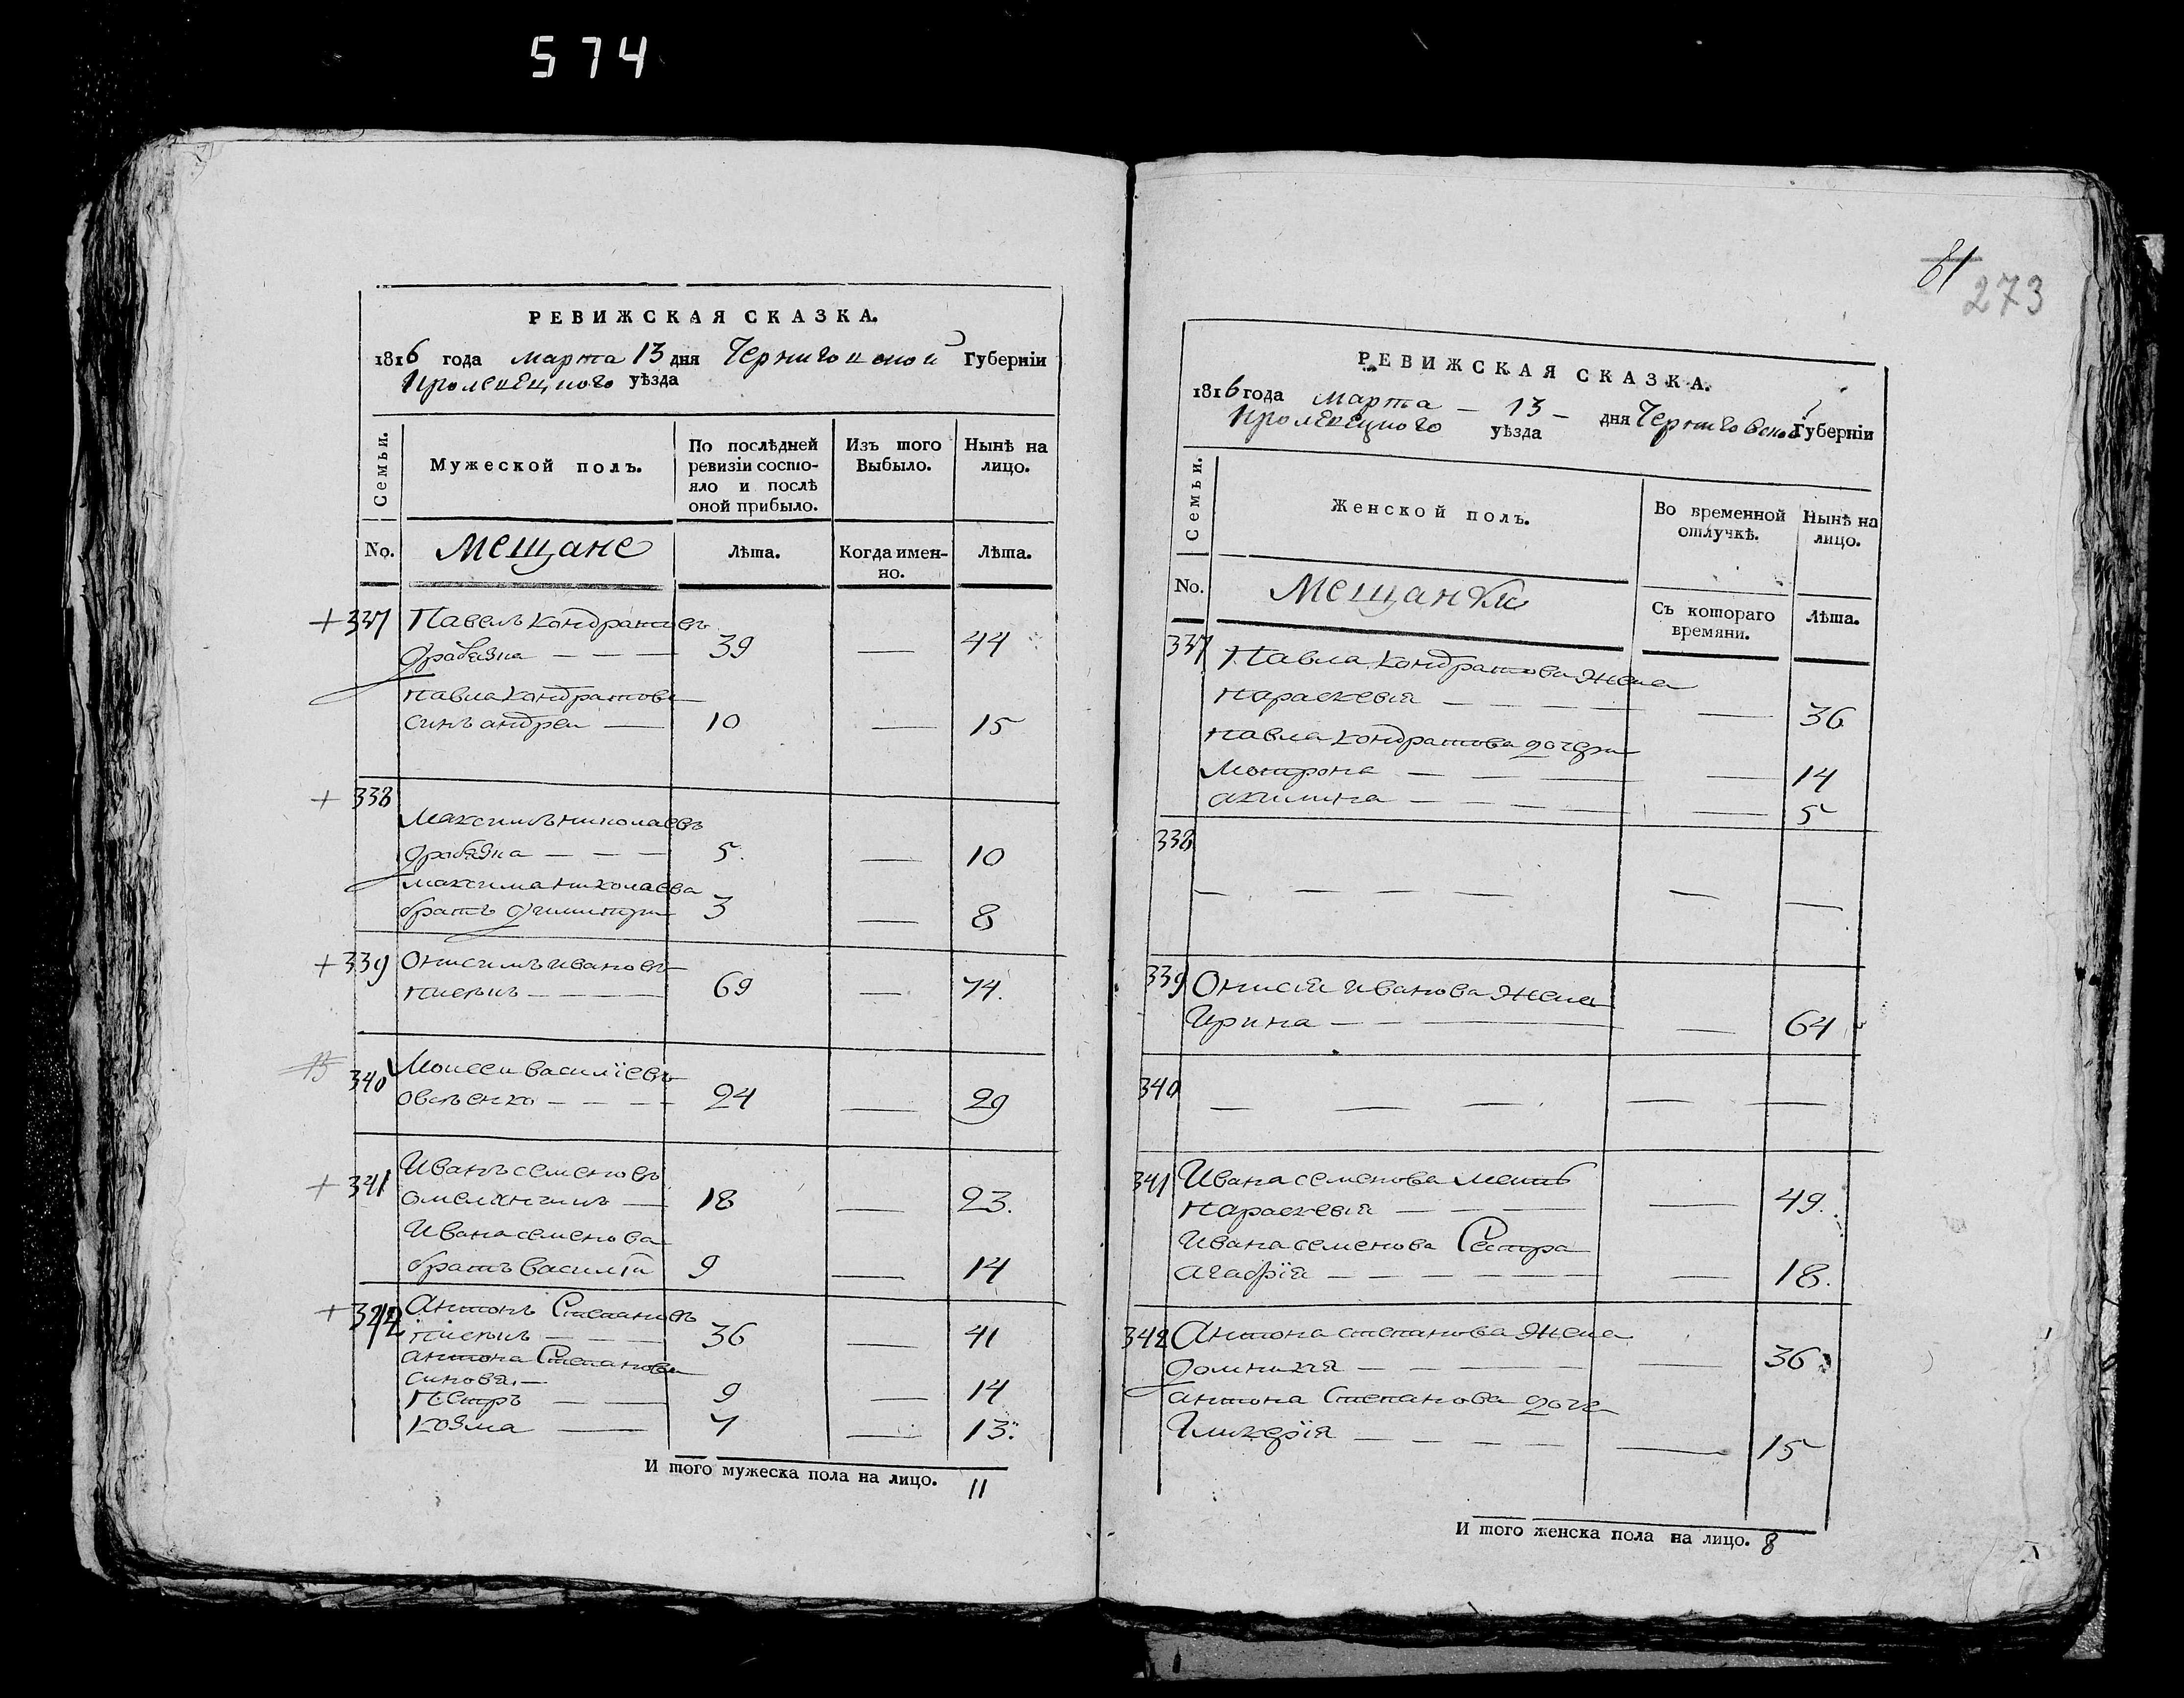 574
РЕВИЖСКАЯ СКАЗКА.
1816 года марта 13 дня Черниговской Губерніи
Кролевецкого уѣзда
Семьи.
Мужеской полъ.
По послѣдней ревизіи состояло и послѣ оной прибыло.
Изъ того Выбыло.
Нынѣ на лицо.
No. Мещане Лѣта. Когда именно. Лѣта.
+ 337 Павелъ Кондратовъ
39 — 44
Павла Кондратова
синъ андреи — 10 — 15
+ 338
Максимъ николаевъ
5. — 10
максима николаева
братъ димитри 3 — 8
+ 339 Онисимъ ивановъ
69 — 74.
340 Моисеи василіевъ
24 — 29
+ 341 Иванъ семеновъ
18 — 23.
Ивана семенова
братъ василій 9 — 14
+ 342 Антонъ Степановъ
36 — 41
антона Степанова
синовя. —
Петръ — 9 — 14
козма — 7 — 13.
И того мужеска пола на лицо. 11
81
273
РЕВИЖСКАЯ СКАЗКА.
1816 года Марта — 13 — дня Черниговской Губерніи
Кролевецкого уѣзда
Семьи.
Женской полъ.
Во временной отлучкѣ.
Нынѣ на лицо.
No. Мещанки Съ котораго времяни. Лѣта.
337 Павла Кондратова жена
Параскевія — — 36
павла кондратова дочери
Мотрона — — 14
акилина — — 5
338
— — — — — —
339 Онисія Иванова жена
Ирина — — 64
340
— — — — —
341 Ивана семенова мать
Параскевія — — 49.
Ивана семенова Сестра
агафія — — 18.
342 Антона степанова жена
домникія — — 36
антона Степанова дочь
Гликерія — — 15
И того женска пола на лицо. 8